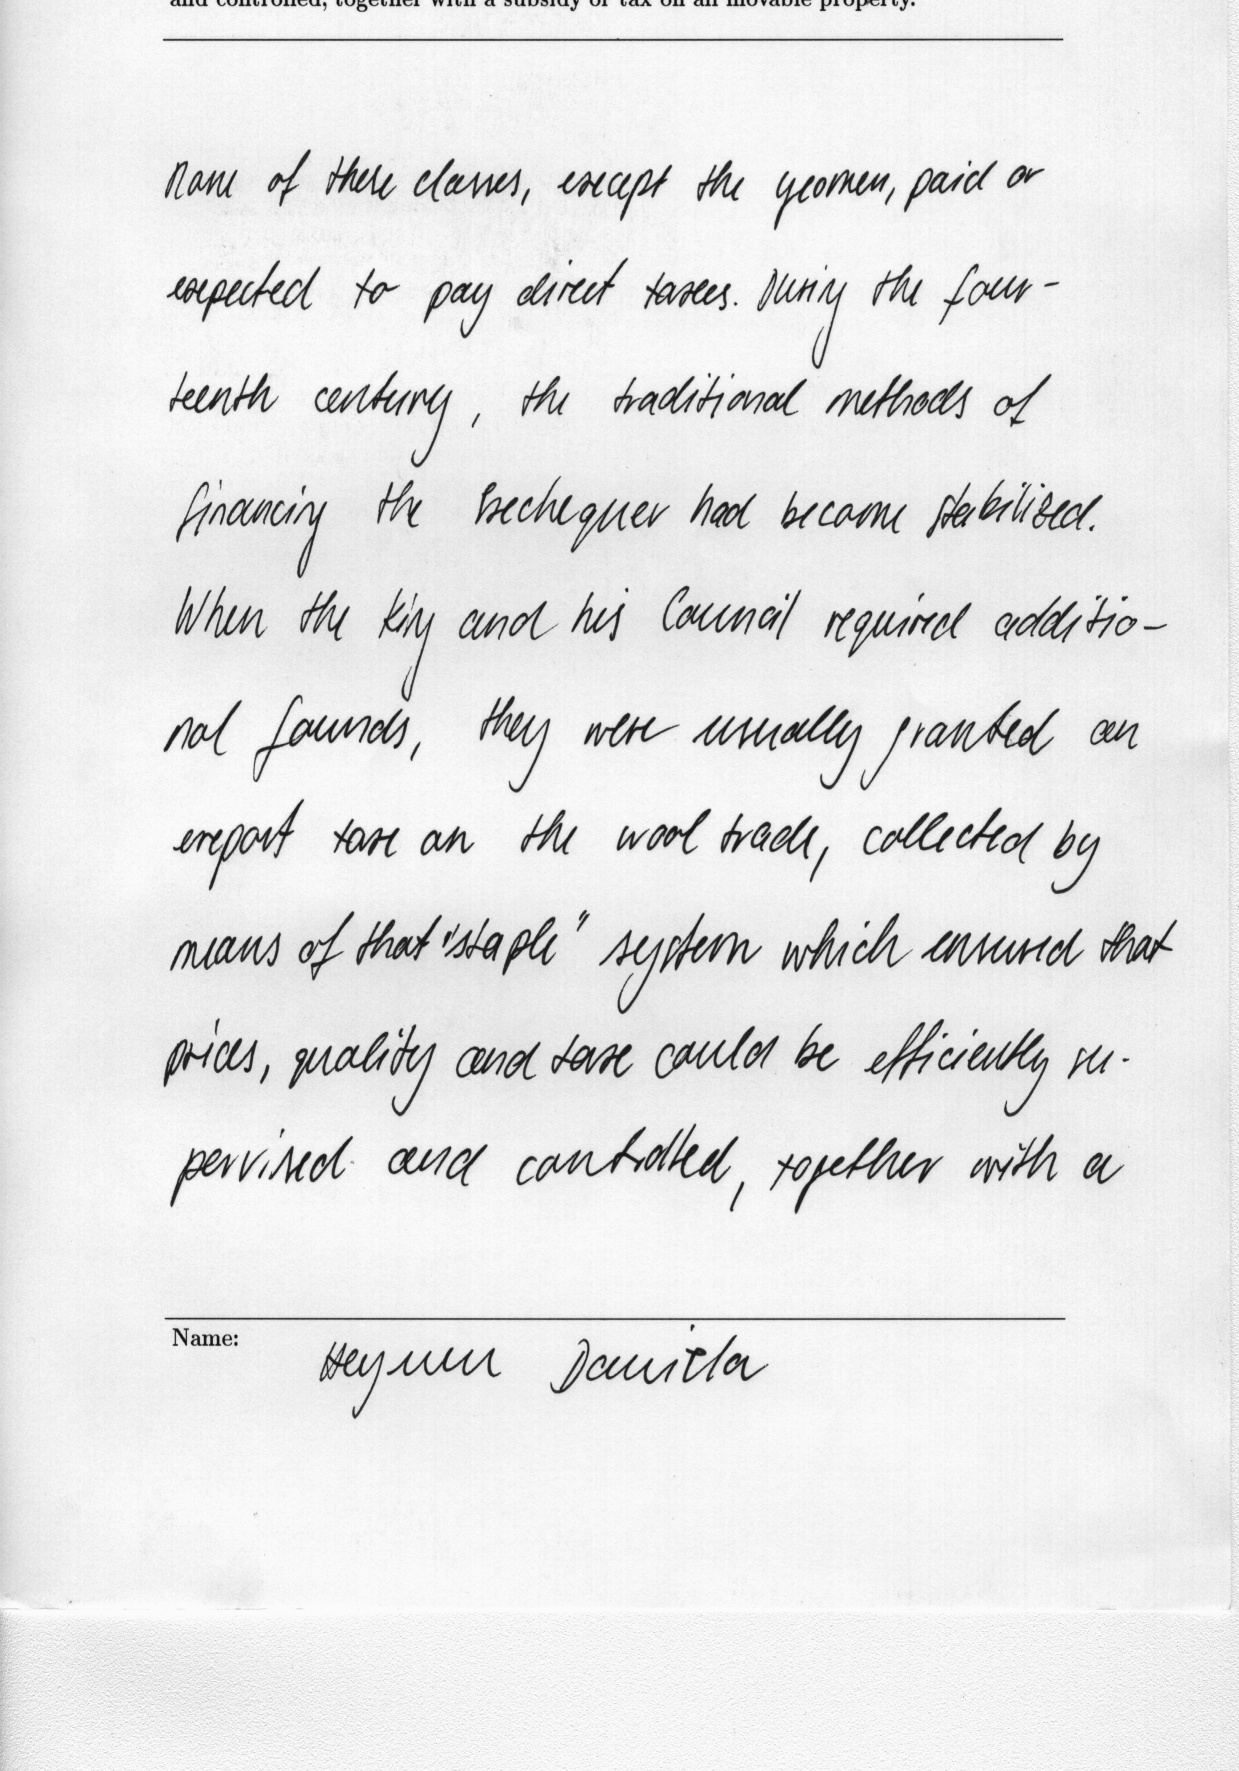 and controlled, together with a subsidy or tax on all movable property.
None of these classes, except the yeomen, paid or
expected to pay direct taxes. During the four-
teenth century, the traditional methods of
financing the Exchequer had become stabilized.
When the King and his Council required additio-
nal founds, they were usually granted an
export tax on the wool trade, collected by
means of that "staple" system which ensured that
prices, quality and tax could be efficiently su-
pervised and controlled, together with a
Name:
Daniela